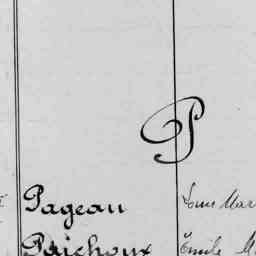 P
Pageau Louis Mar
Paichoux Emile M